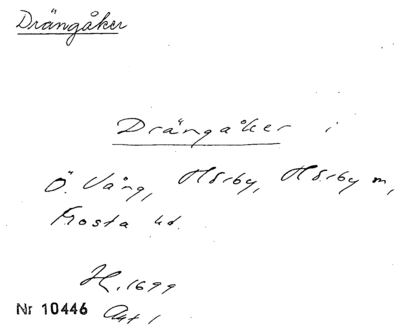 Drängåker
Drängåker i
Ö. Vång, Hörby, Hörby m,
Frosta hd.
H. 1699
Nr 10446 Akt 1